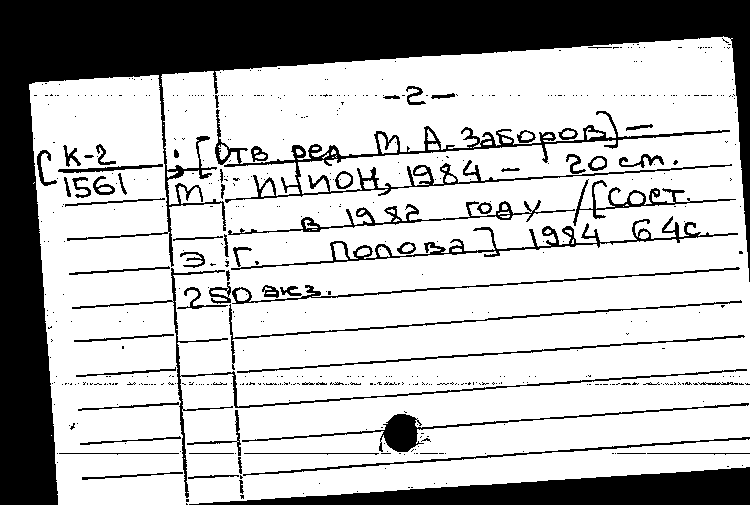 -2-
К-2 ; [Отв. ред. М. А. Заборов] -
1561 М.: ИНИОН, 1984. - 20 см.
... в 1982 году / [Сост.
Э. Г. Попова] 1984 64 с.
250 экз.